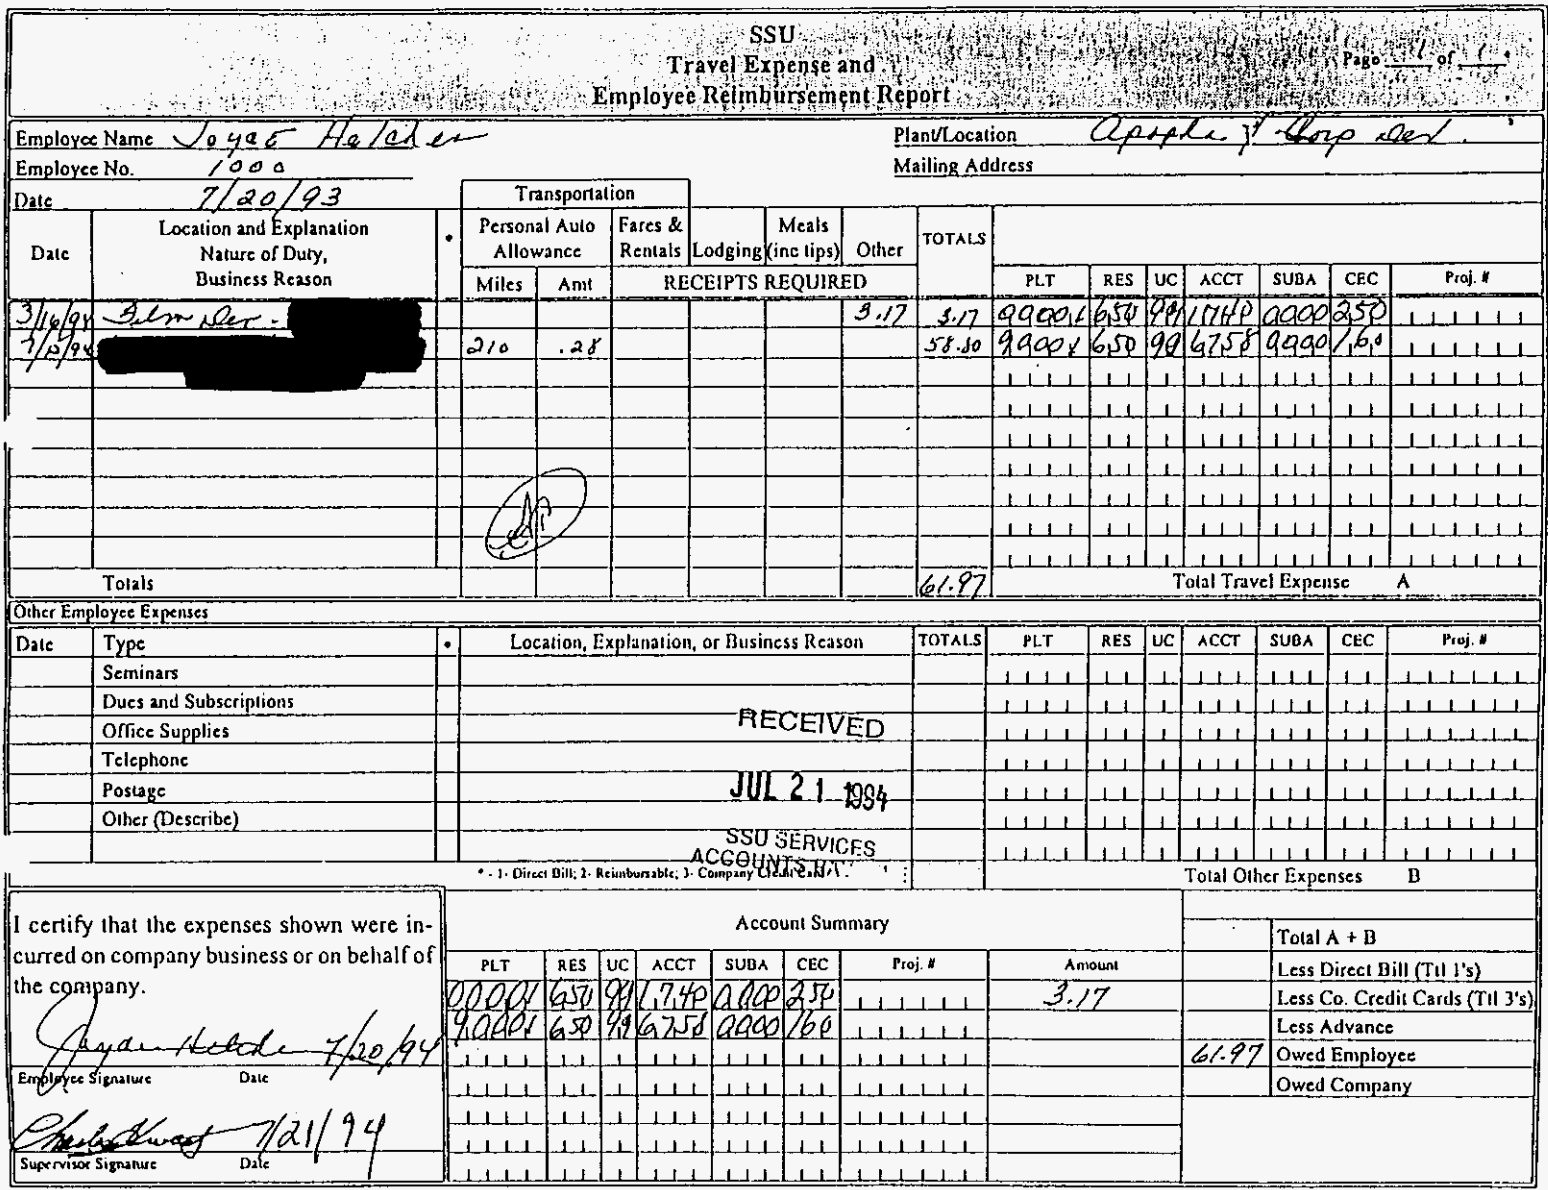 SSU
Travel Expense and
Employee Reimbursement Report
Page 1 of 1
Employee Name Joyce
Plant/Location Apopka
Employee No. 1000
Mailing Address
Date 7/20/93
Transportation
Date
Location and Explanation
Nature of Duty,
Business Reason
*
Personal Auto
Allowance
Fares &
Rentals
Lodging
Meals
(inc tips)
Other
TOTALS
Miles Amt
RECEIPTS REQUIRED
PLT RES UC ACCT SUBA CEC Proj. #
3/16/94 3.17 3.17 650 99 0000 250
210 .28 58.80 650 99 6758 0000 160
Totals 61.97 Total Travel Expense A
Other Employee Expenses
Date Type * Location, Explanation, or Business Reason TOTALS PLT RES UC ACCT SUBA CEC Proj. #
Seminars
Dues and Subscriptions
Office Supplies
Telephone
Postage
Other (Describe)
RECEIVED
JUL 21 1994
SSU SERVICES
ACCOUNTS
* - 1- Direct Bill; 2- Reimbursable; 3- Company Credit Card
Total Other Expenses B
I certify that the expenses shown were in-
curred on company business or on behalf of
the company.
7/20/94
Employee Signature Date
7/21/94
Supervisor Signature Date
Account Summary
PLT RES UC ACCT SUBA CEC Proj. # Amount
00001 650 99 1740 0000 250 3.17
90001 650 99 6758 0000 160
Total A + B
Less Direct Bill (Ttl 1's)
Less Co. Credit Cards (Ttl 3's)
Less Advance
61.97 Owed Employee
Owed Company